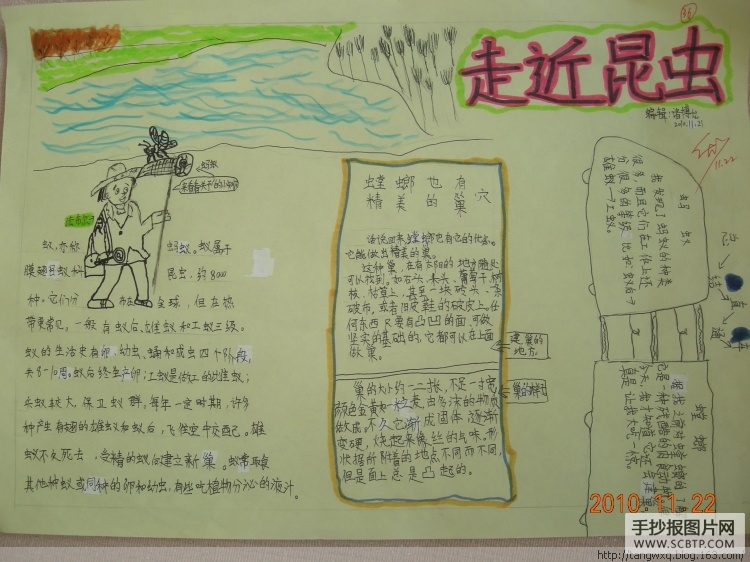 走近昆虫
编辑:
11.22
蚂蚁
法布尔
蚁,亦称 蚂蚁。蚁属于
膜翅目蚁科 昆虫,约8000
种。它们分 布 全球,但在热
带更常见。一般有蚁后、雄蚁和工蚁三级。
蚁的生活史有卵、幼虫、蛹和成虫四个阶段,
共8-10周。蚁后终生产卵;工蚁是做工的雌蚁;
兵蚁较大,保卫蚁群。每年一定时期,许多
种产生有翅的雄蚁和蚁后,飞往空中交配。雄
蚁不久死去,受精的蚁后建立新巢。蚁常取食
其他种蚁或同种的卵和幼虫,有些吃植物分泌的液汁。
螳螂也有
精美的巢穴
话说回来螳螂也有它的优点。
它能做出精美的巢。
这种巢,在有太阳的地方随处
可以找到。如石头、木头、葡萄干、树
枝、枯草上,甚至一块砖头、一条
破布,或者旧皮鞋的破皮上。任
何东西只要有凸凹的面,可做
坚实的基础的,它都可以在上面
做巢。
巢的大小约一二寸长,不足一寸宽,
颜色金黄如一粒麦。由多沫的物质
做成。不久它渐成固体逐渐
变硬,烧起来像丝的气味。形
状根据所附着的地点不同而不同,
但是面上总是凸起的。
建巢的
地方。
巢的样子
蚂蚁
我发现了蚂蚁的种类
很多,而且它们在工作上还
分很多的等级,比如:蚁后、
雄蚁、工蚁。
总
结
螳螂
2010.11.22
手抄报图片网
WWW.SCBTP.COM
http://tangwxq.blog.163.com/